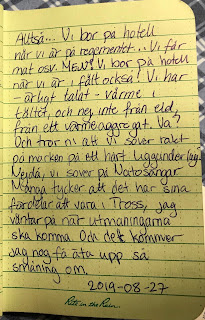 Alltså... Vi bor på hotell
när vi är på regementet... Vi får
mat osv. MEN! Vi bor på hotell
när vi är i fält också! Vi har
- ärligt talat - värme i
tältet, och nej inte från eld,
från ett värmeaggregat. Va?
Och tror ni att vi sover rakt
på marken på ett hårt liggunderlag.
Nejdå, vi sover på Natosängar
Många tycker att det har sina
fördelar att vara i Tross, jag
väntar på när utmaningarna
ska komma. Och det kommer
jag nog få äta upp så
småning om.
2019-08-27
Rite in the Rain